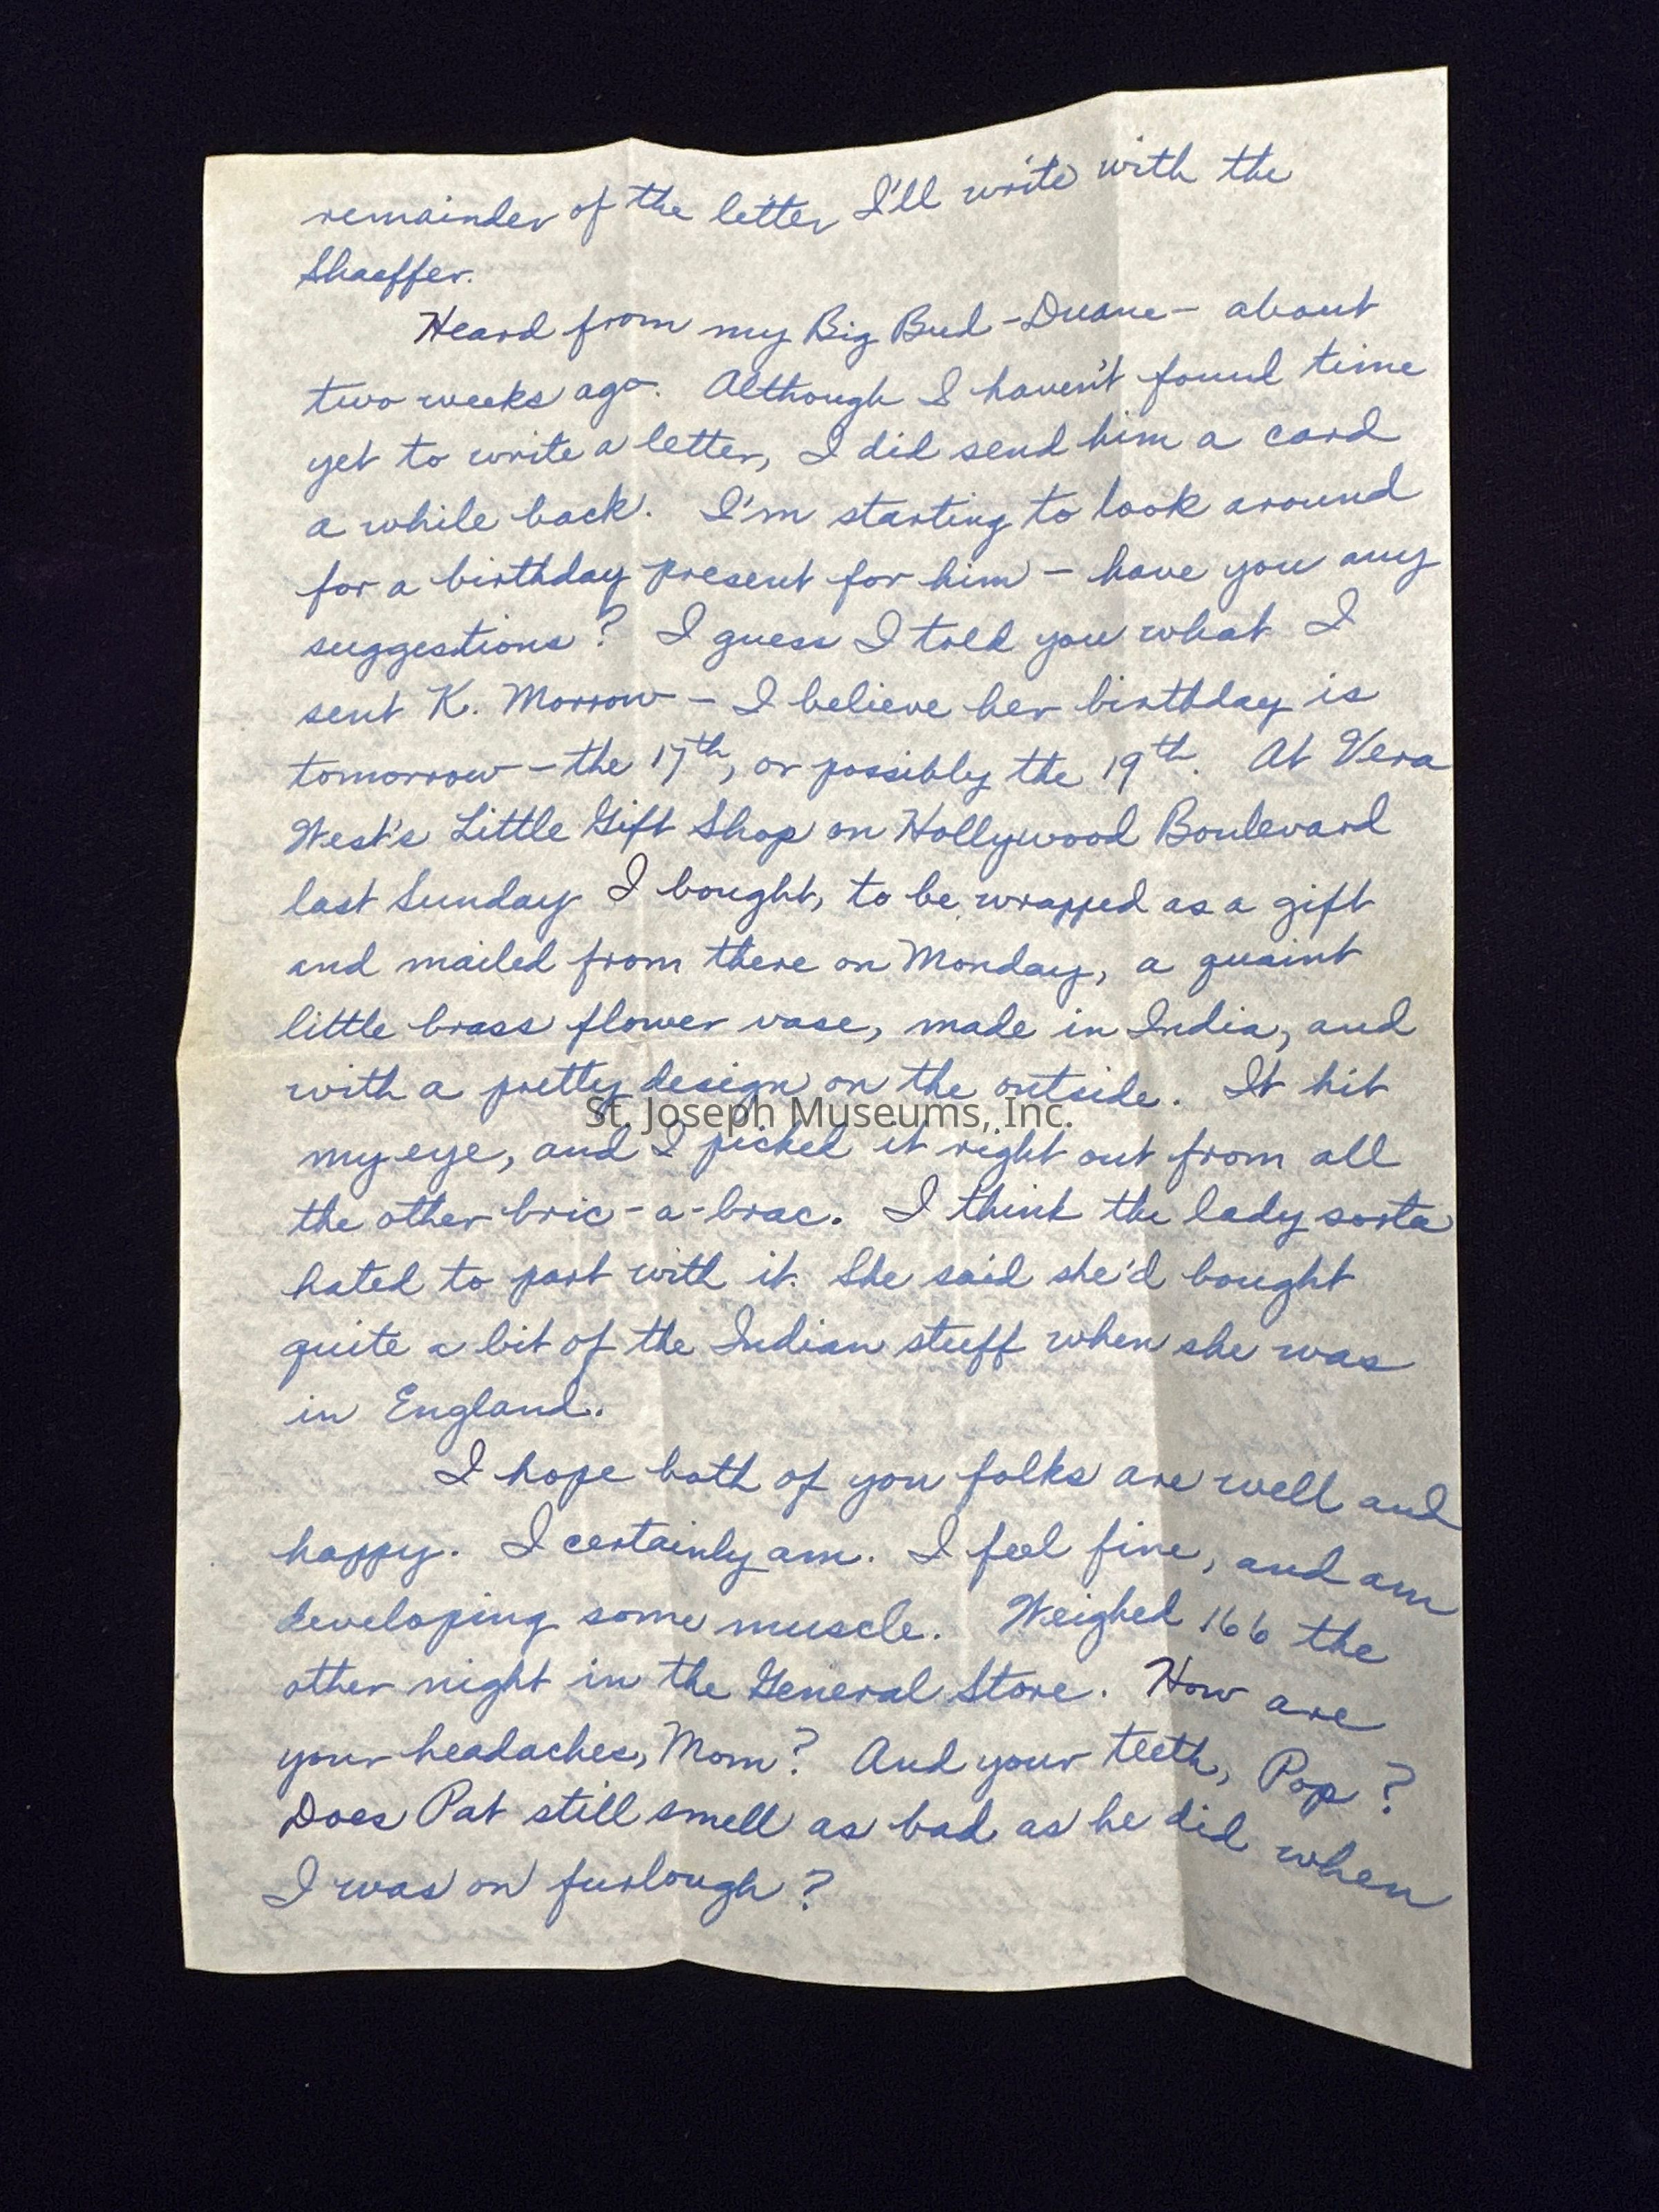 remainder of the letter I'll write with the
Shaeffer.
Heard from my Big Bud - Duane - about
two weeks ago. Although I haven't found time
yet to write a letter, I did send him a card
a while back. I'm starting to look around
for a birthday present for him - have you any
suggestions? I guess I told you what I
sent K. Morrow - I believe her birthday is
tomorrow - the 17th, or possibly the 19th. At Vera
West's Little Gift Shop on Hollywood Boulevard
last Sunday I bought, to be wrapped as a gift
and mailed from there on Monday, a quaint
little brass flower vase, made in India, and
with a pretty design on the outside. It hit
St. Joseph Museums, Inc.
my eye, and I picked it right out from all
the other bric-a-brac. I think the lady sorta
hated to part with it. She said she'd bought
quite a bit of the Indian stuff when she was
in England.
I hope both of you folks are well and
happy. I certainly am. I feel fine, and am
developing some muscle. Weighed 166 the
other night in the General Store. How are
your headaches, Mom? And your teeth, Pop?
Does Pat still smell as bad as he did when
I was on furlough?